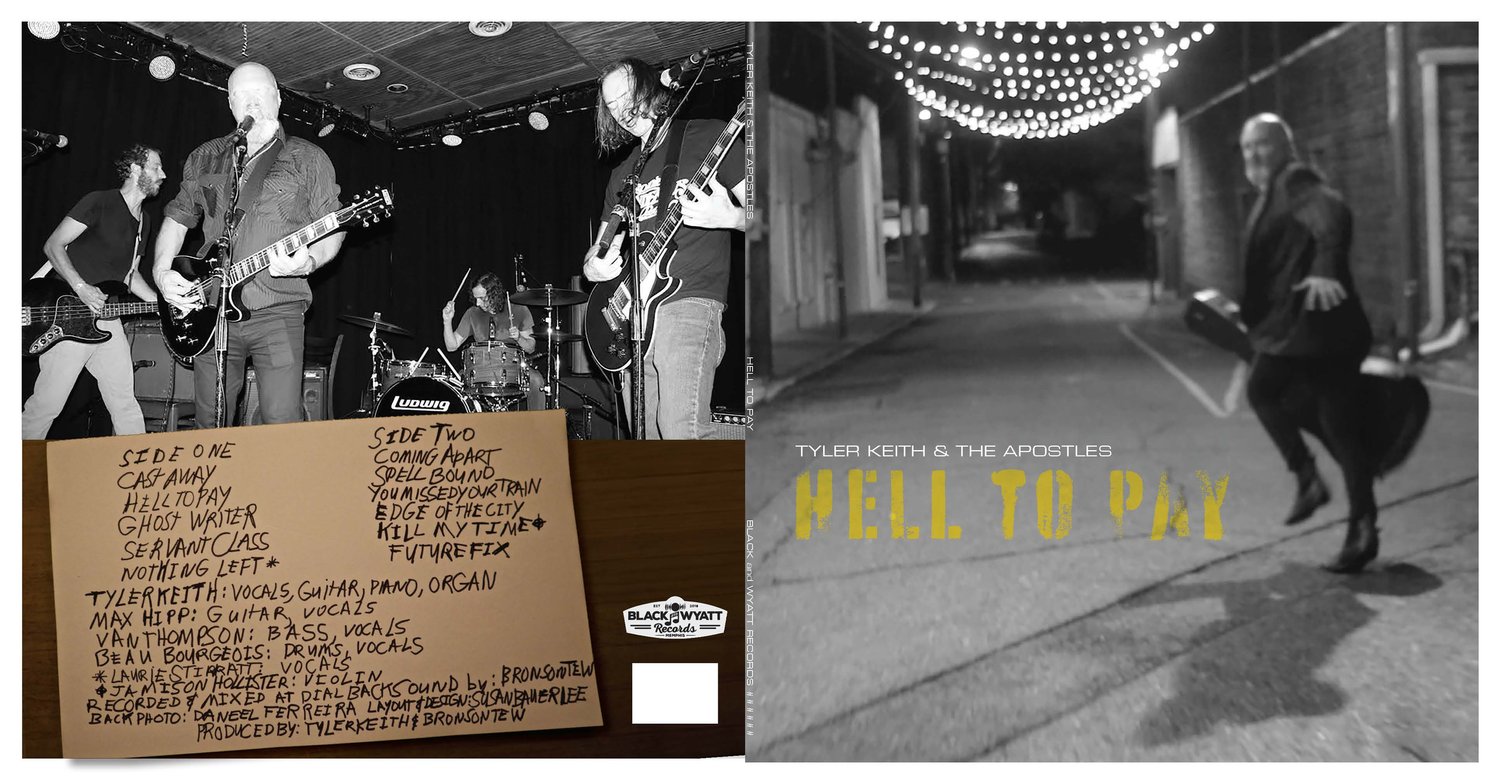 LUDWIG
SIDE ONE
CAST AWAY
HELL TO PAY
GHOST WRITER
SERVANT CLASS
NOTHING LEFT *
SIDE TWO
COMING APART
SPELL BOUND
YOU MISSED YOUR TRAIN
EDGE OF THE CITY
KILL MY TIME⌖
FUTURE FIX
TYLER KEITH: VOCALS, GUITAR, PIANO, ORGAN
MAX HIPP: GUITAR, VOCALS
VAN THOMPSON: BASS, VOCALS
BEAU BOURGEOIS: DRUMS, VOCALS
* LAURIE STIRRATT: VOCALS
⌖ JAMISON HOLLISTER: VIOLIN
RECORDED & MIXED AT DIAL BACK SOUND by: BRONSON TEW
BACK PHOTO: DANEEL FERREIRA LAYOUT & DESIGN: SUSAN BAUER LEE
PRODUCED BY: TYLER KEITH & BRONSON TEW
EST 2018
BLACK WYATT
Records
MEMPHIS
TYLER KEITH & THE APOSTLES
HELL TO PAY
BLACK and WYATT RECORDS # # # # # #
TYLER KEITH & THE APOSTLES
HELL TO PAY